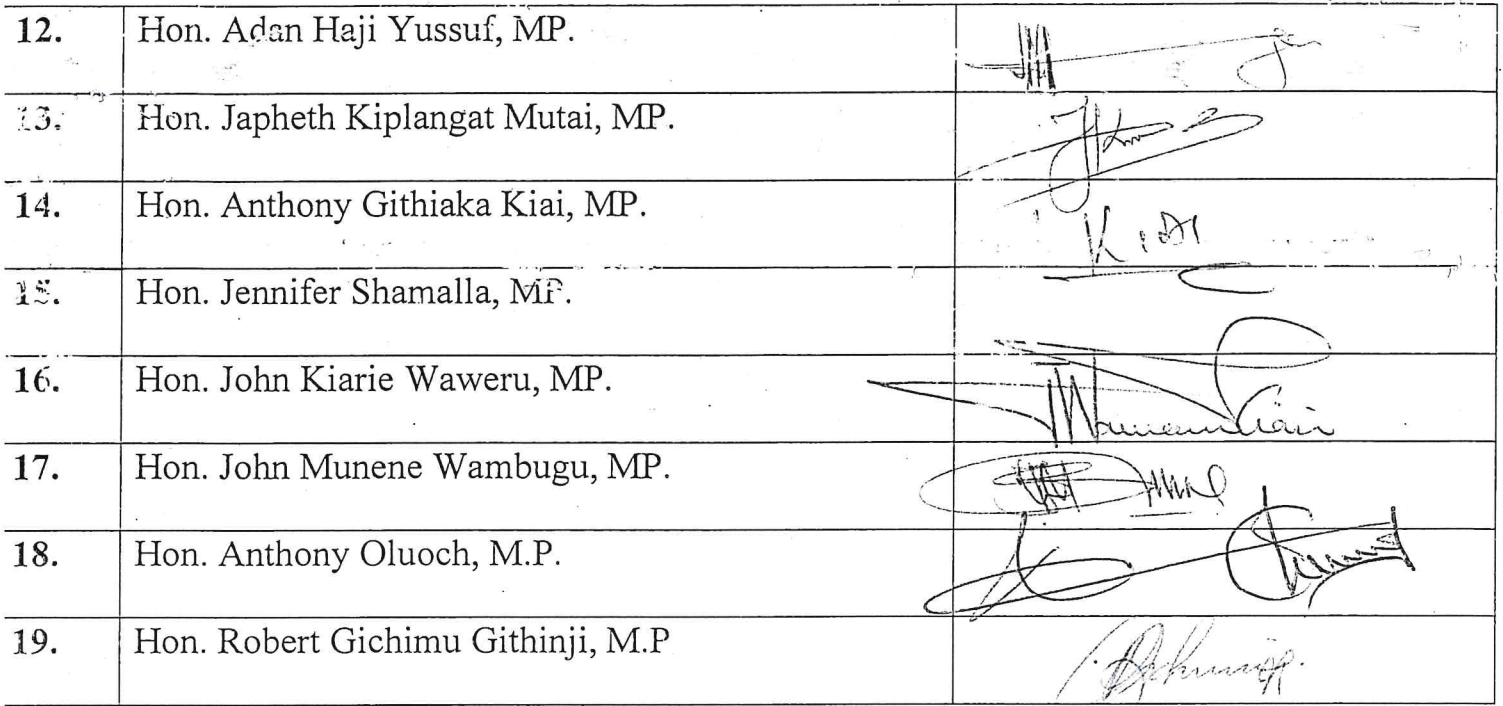 12. Hon. Adan Haji Yussuf, MP.
13. Hon. Japheth Kiplangat Mutai, MP.
14. Hon. Anthony Githiaka Kiai, MP. Kiai
15. Hon. Jennifer Shamalla, MP.
16. Hon. John Kiarie Waweru, MP.
17. Hon. John Munene Wambugu, MP.
18. Hon. Anthony Oluoch, M.P.
19. Hon. Robert Gichimu Githinji, M.P